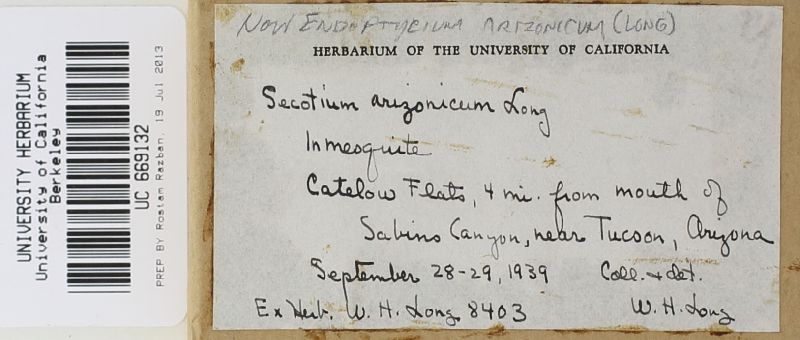 UNIVERSITY HERBARIUM
University of California
Berkeley
UC 669132
PREP BY Rostam Razban, 19 Jul 2013
NOW ENDOPTYCIUM ARIZONICUM (LONG)
HERBARIUM OF THE UNIVERSITY OF CALIFORNIA
Secotium arizonicum Long
In mesquite
Catelow Flats, 4 mi. from mouth of
Sabino Canyon, near Tucson, Arizona
September 28-29, 1939 Coll. & det.
Ex Herb. W. H. Long 8403 W. H. Long